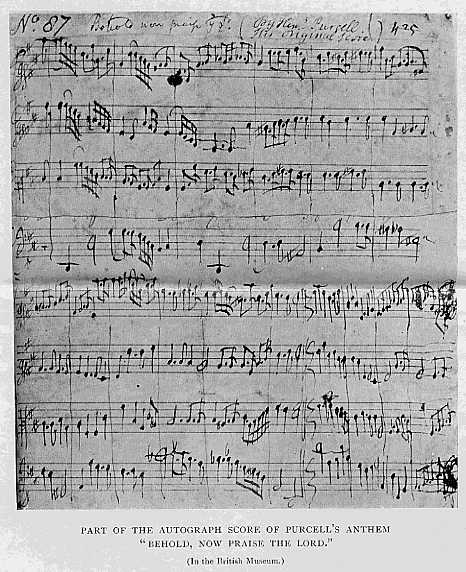 No. 87 Behold now praise ye ( By Henr: Purcell ) 425
His original Score
PART OF THE AUTOGRAPH SCORE OF PURCELL'S ANTHEM
"BEHOLD, NOW PRAISE THE LORD."
(In the British Museum.)